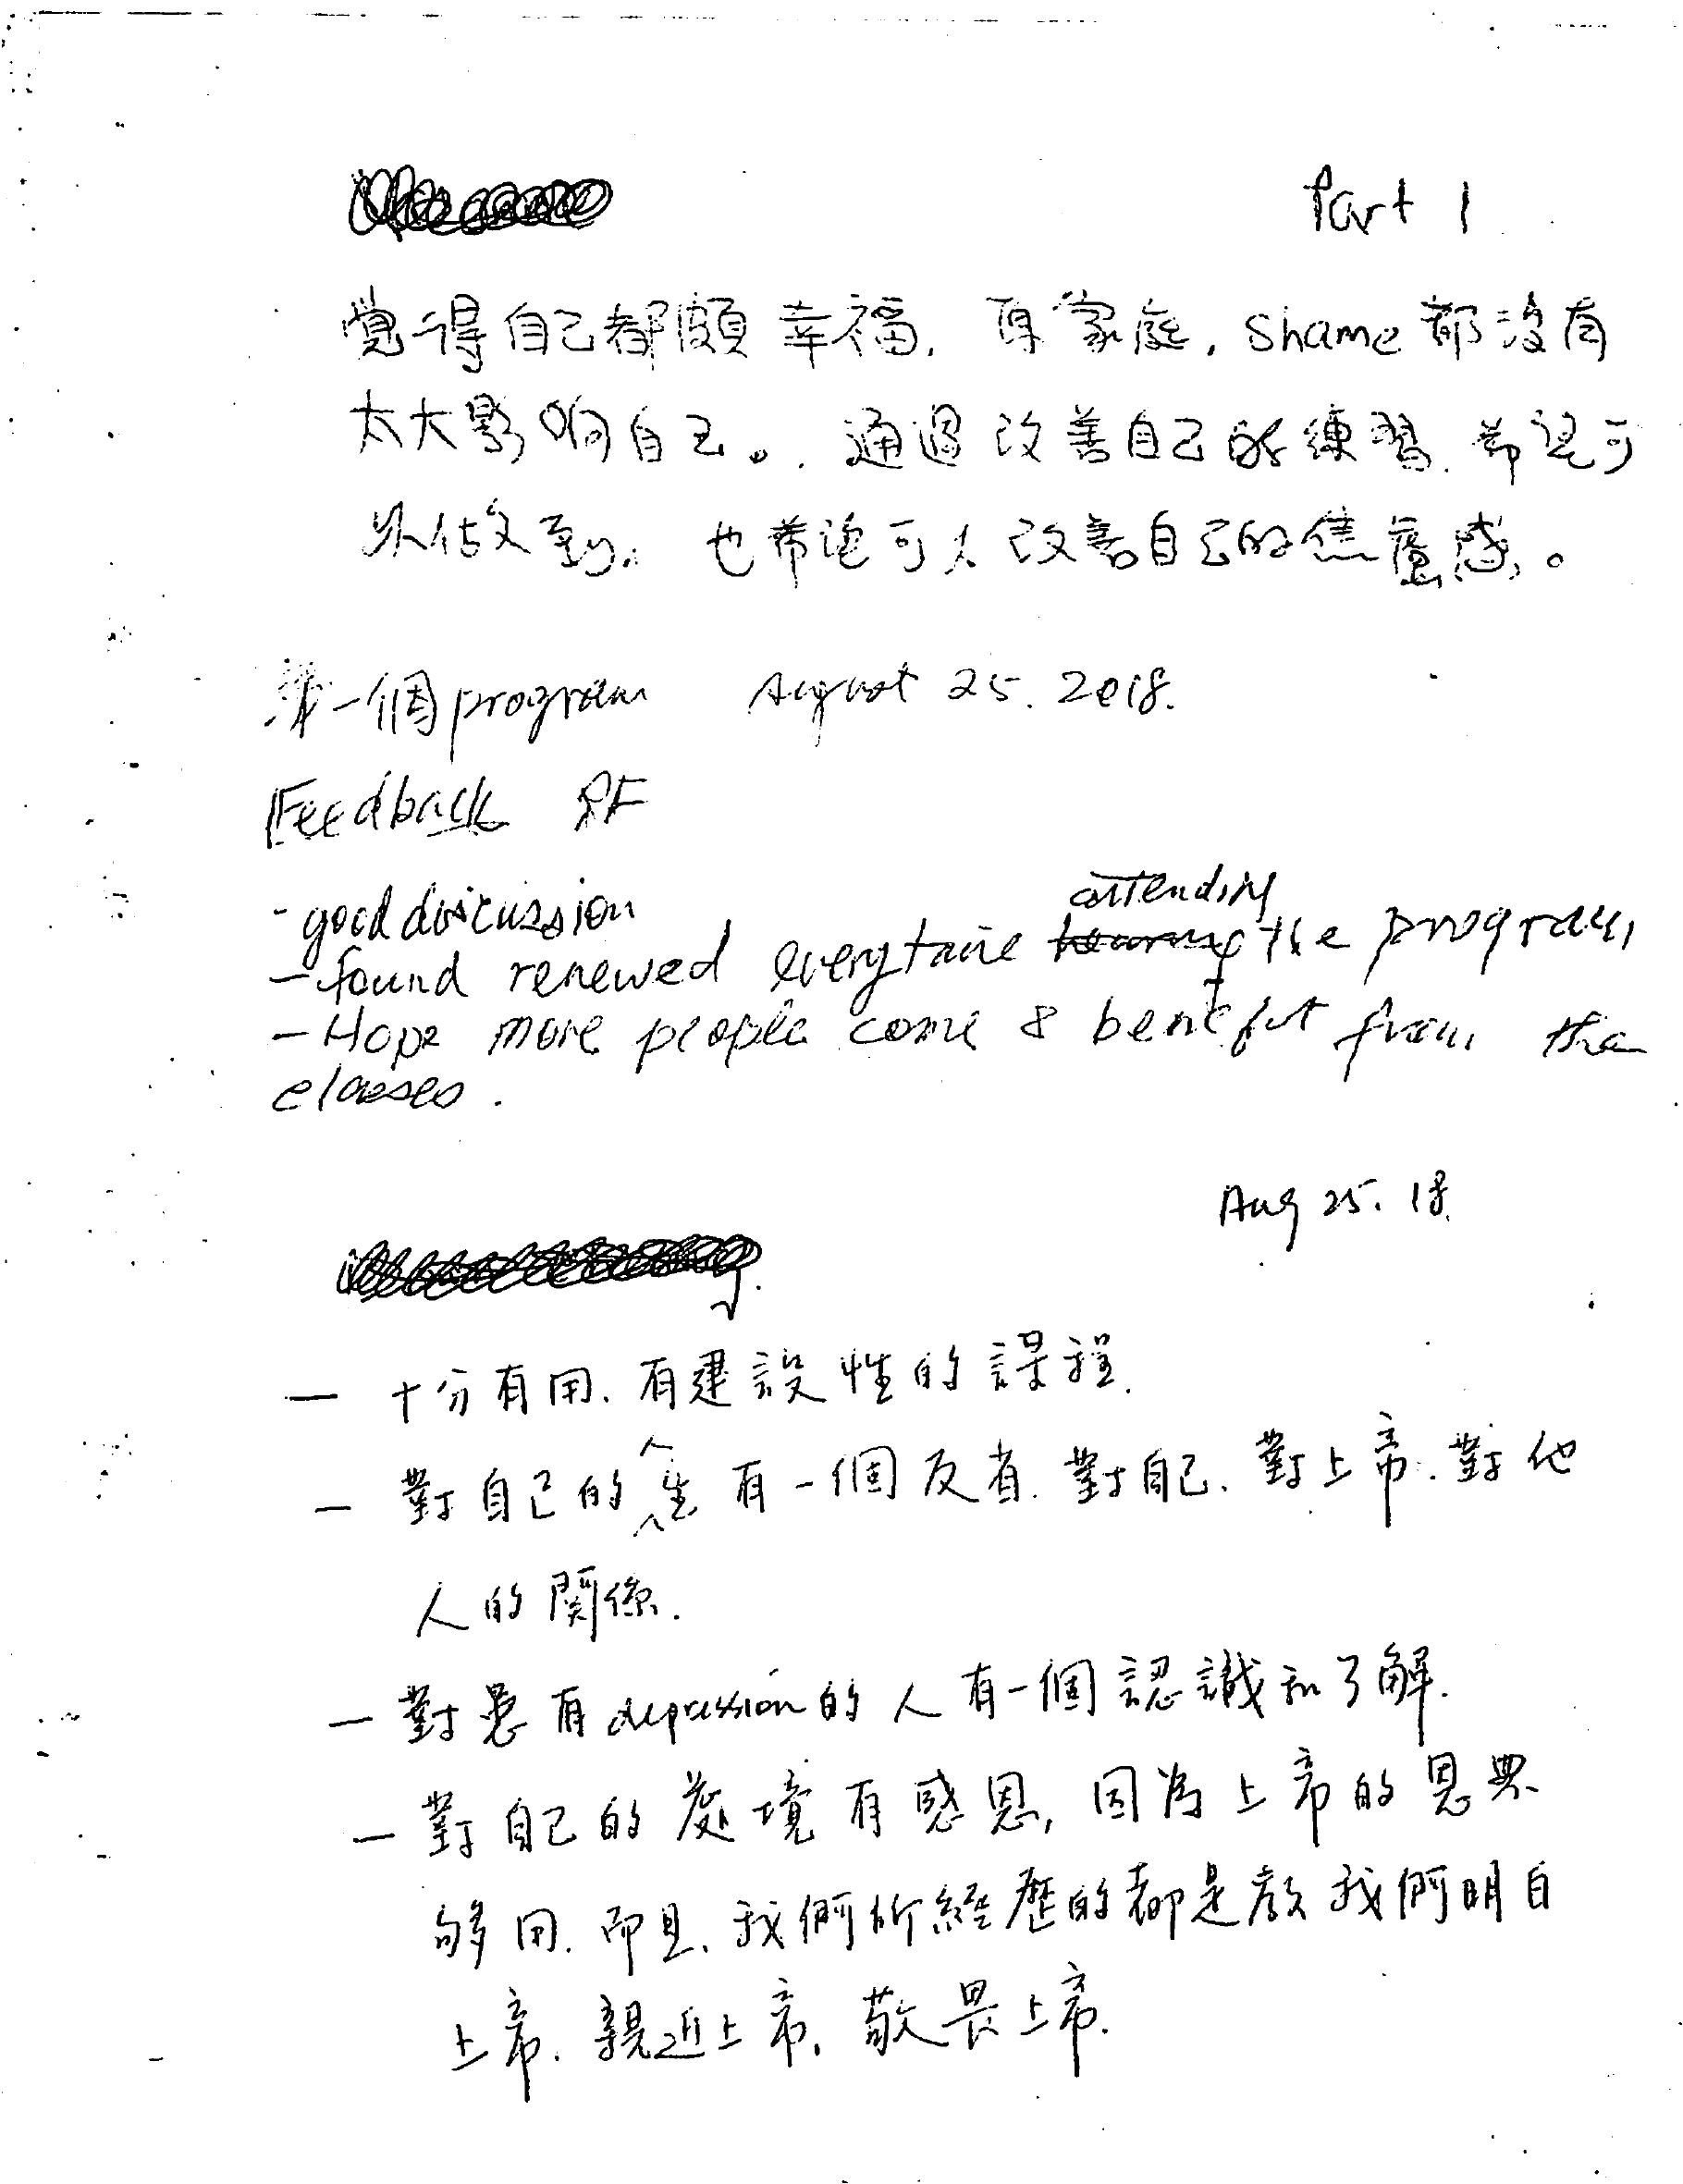 Part 1
覺得自己都頗幸福. 原家庭, Shame 都沒有
太大影响自己。通過改善自己的練習. 希望可
以做到. 也希望可以改善自己的焦慮感。
第一個program August 25. 2018.
Feedback RF
- good discussion
- found renewed everytime attending the program
- Hope more people come & benefit from the
classes.
Aug 25. 18.
— 十分有用. 有建設性的課程.
— 對自己的人生有一個反省. 對自己. 對上帝. 對他
人的關係.
— 對患有depression的人有一個認識和了解.
— 對自己的處境有感恩, 因為上帝的恩典
够用. 而且. 我們所經歷的都是教我們明白
上帝. 親近上帝. 敬畏上帝.